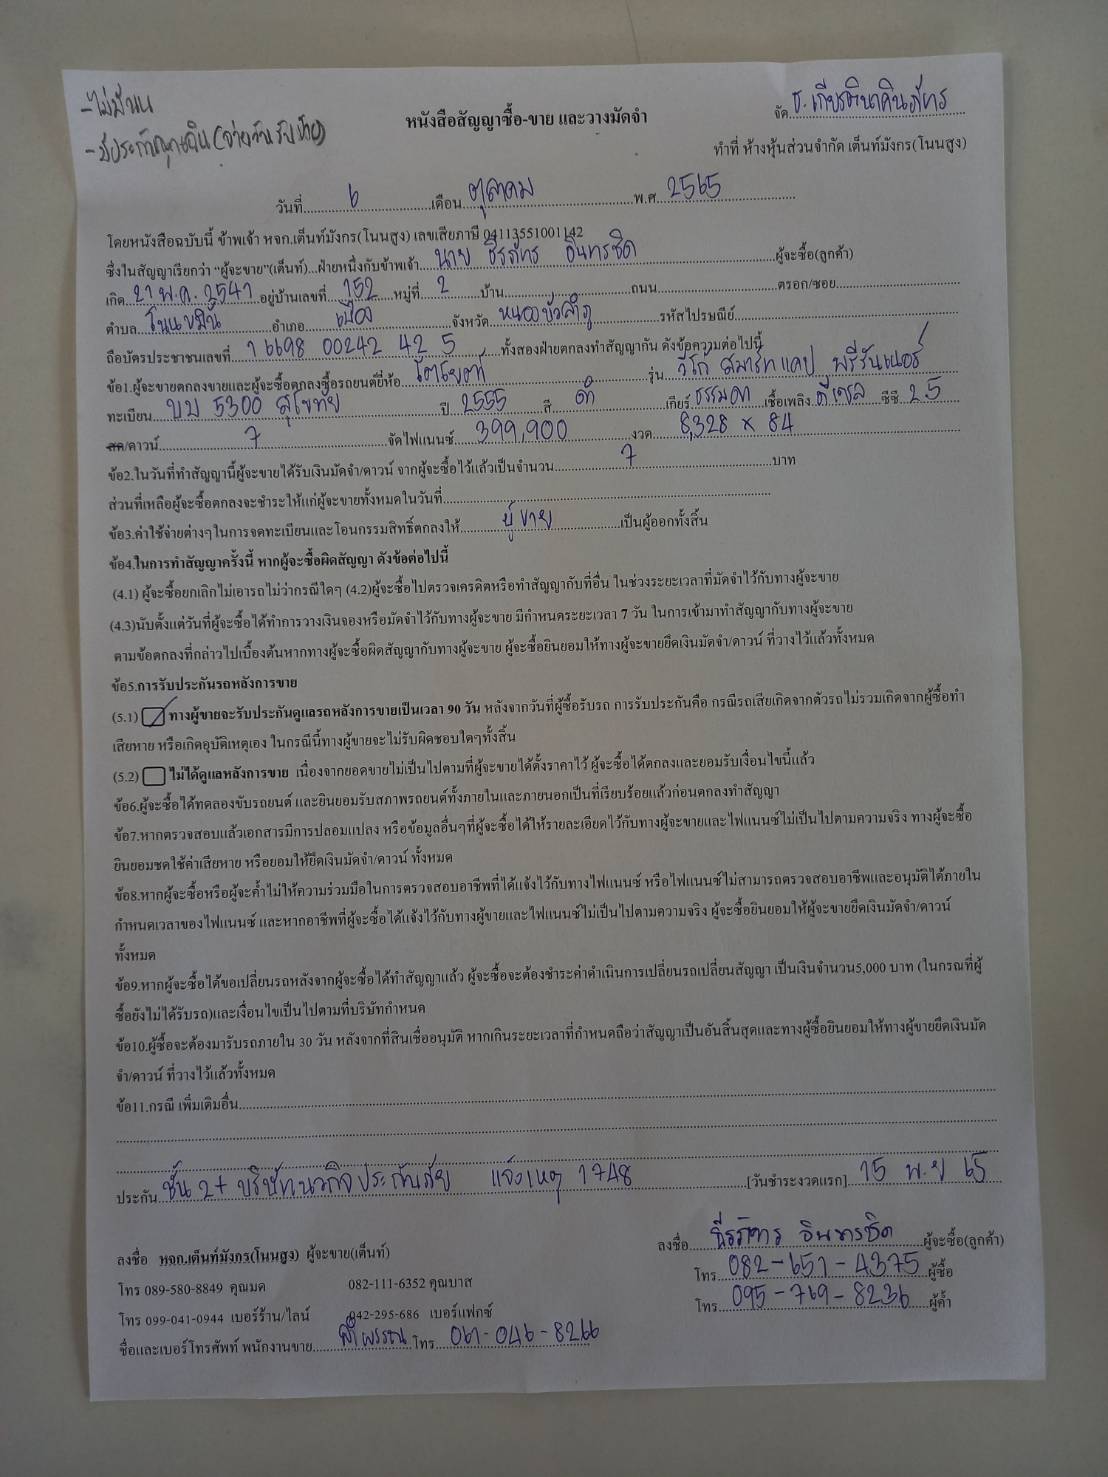 -ไม่มี
-มีประกันฉุกเฉิน (จ่ายวันรับป้าย)
หนังสือสัญญาซื้อ-ขาย และวางมัดจำ
จัด ธ.เกียรตินาคินภัทร
ทำที่ ห้างหุ้นส่วนจำกัด เต็นท์มังกร(โนนสูง)
วันที่ 6 เดือน ตุลาคม พ.ศ. 2565
โดยหนังสือฉบับนี้ ข้าพเจ้า หจก.เต็นท์มังกร(โนนสูง) เลขเสียภาษี 0413551001142
ซึ่งในสัญญาเรียกว่า "ผู้จะขาย"(เต็นท์)...ฝ่ายหนึ่งกับข้าพเจ้า นาย ธีรภัทร อินทรชิด ผู้จะซื้อ(ลูกค้า)
เกิด 21 พ.ค. 2541 อยู่บ้านเลขที่ 152 หมู่ที่ 2 บ้าน ถนน ตรอก/ซอย
ตำบล โนนขมิ้น อำเภอ เมือง จังหวัด หนองบัวลำภู รหัสไปรษณีย์
ถือบัตรประชาชนเลขที่ 1 6698 00242 42 5 ทั้งสองฝ่ายตกลงทำสัญญากัน ดังข้อความต่อไปนี้
ข้อ1.ผู้จะขายตกลงขายและผู้จะซื้อตกลงซื้อรถยนต์ยี่ห้อ โตโยต้า รุ่น วีโก้ สมาร์ทแคป พรีรันเนอร์
ทะเบียน บบ 5300 สุโขทัย ปี 2555 สี ดำ เกียร์ ธรรมดา เชื้อเพลิง ดีเซล ซีซี 2.5
สด/ดาวน์ 7 จัดไฟแนนซ์ 399,900 งวด 8,328 x 84
ข้อ2.ในวันที่ทำสัญญานี้ผู้จะขายได้รับเงินมัดจำ/ดาวน์ จากผู้จะซื้อไว้แล้วเป็นจำนวน 7 บาท
ส่วนที่เหลือผู้จะซื้อตกลงจะชำระให้แก่ผู้จะขายทั้งหมดในวันที่
ข้อ3.ค่าใช้จ่ายต่างๆในการจดทะเบียนและโอนกรรมสิทธิ์ตกลงให้ ผู้ขาย เป็นผู้ออกทั้งสิ้น
ข้อ4.ในการทำสัญญาครั้งนี้ หากผู้จะซื้อผิดสัญญา ดังข้อต่อไปนี้
(4.1) ผู้จะซื้อยกเลิกไม่เอารถไม่ว่ากรณีใดๆ (4.2)ผู้จะซื้อไปตรวจเครดิตหรือทำสัญญากับที่อื่น ในช่วงระยะเวลาที่มัดจำไว้กับทางผู้จะขาย
(4.3)นับตั้งแต่วันที่ผู้จะซื้อได้ทำการวางเงินจองหรือมัดจำไว้กับทางผู้จะขาย มีกำหนดระยะเวลา 7 วัน ในการเข้ามาทำสัญญากับทางผู้จะขาย
ตามข้อตกลงที่กล่าวไปเบื้องต้นหากทางผู้จะซื้อผิดสัญญากับทางผู้จะขาย ผู้จะซื้อยินยอมให้ทางผู้จะขายยึดเงินมัดจำ/ดาวน์ ที่วางไว้แล้วทั้งหมด
ข้อ5.การรับประกันรถหลังการขาย
(5.1) ทางผู้ขายจะรับประกันดูแลรถหลังการขายเป็นเวลา 90 วัน หลังจากวันที่ผู้ซื้อรับรถ การรับประกันคือ กรณีรถเสียเกิดจากตัวรถไม่รวมเกิดจากผู้ซื้อทำ
เสียหาย หรือเกิดอุบัติเหตุเอง ในกรณีนี้ทางผู้ขายจะไม่รับผิดชอบใดๆทั้งสิ้น
(5.2) ไม่ได้ดูแลหลังการขาย เนื่องจากยอดขายไม่เป็นไปตามที่ผู้จะขายได้ตั้งราคาไว้ ผู้จะซื้อได้ตกลงและยอมรับเงื่อนไขนี้แล้ว
ข้อ6.ผู้จะซื้อได้ทดลองขับรถยนต์ และยินยอมรับสภาพรถยนต์ทั้งภายในและภายนอกเป็นที่เรียบร้อยแล้วก่อนตกลงทำสัญญา
ข้อ7.หากตรวจสอบแล้วเอกสารมีการปลอมแปลง หรือข้อมูลอื่นๆที่ผู้จะซื้อได้ให้รายละเอียดไว้กับทางผู้จะขายและไฟแนนซ์ไม่เป็นไปตามความจริง ทางผู้จะซื้อ
ยินยอมชดใช้ค่าเสียหาย หรือยอมให้ยึดเงินมัดจำ/ดาวน์ ทั้งหมด
ข้อ8.หากผู้จะซื้อหรือผู้จะค้ำไม่ให้ความร่วมมือในการตรวจสอบอาชีพที่ได้แจ้งไว้กับทางไฟแนนซ์ หรือไฟแนนซ์ไม่สามารถตรวจสอบอาชีพและอนุมัติได้ภายใน
กำหนดเวลาของไฟแนนซ์ และหากอาชีพที่ผู้จะซื้อได้แจ้งไว้กับทางผู้ขายและไฟแนนซ์ไม่เป็นไปตามความจริง ผู้จะซื้อยินยอมให้ผู้จะขายยึดเงินมัดจำ/ดาวน์
ทั้งหมด
ข้อ9.หากผู้จะซื้อได้ขอเปลี่ยนรถหลังจากผู้จะซื้อได้ทำสัญญาแล้ว ผู้จะซื้อจะต้องชำระค่าดำเนินการเปลี่ยนรถเปลี่ยนสัญญา เป็นเงินจำนวน5,000 บาท (ในกรณที่ผู้
ซื้อยังไม่ได้รับรถ)และเงื่อนไขเป็นไปตามที่บริษัทกำหนด
ข้อ10.ผู้ซื้อจะต้องมารับรถภายใน 30 วัน หลังจากที่สินเชื่ออนุมัติ หากเกินระยะเวลาที่กำหนดถือว่าสัญญาเป็นอันสิ้นสุดและทางผู้ซื้อยินยอมให้ทางผู้ขายยึดเงินมัด
จำ/ดาวน์ ที่วางไว้แล้วทั้งหมด
ข้อ11.กรณี เพิ่มเติมอื่น
ประกัน ชั้น 2+ บริษัทนวกิจประกันภัย แจ้งเหตุ 1748 [วันชำระงวดแรก] 15 พ.ย 65
ลงชื่อ หจก.เต็นท์มังกร(โนนสูง) ผู้จะขาย(เต็นท์)
ลงชื่อ ธีรภัทร อินทรชิด ผู้จะซื้อ(ลูกค้า)
โทร 089-580-8849 คุณมด 082-111-6352 คุณบาส
โทร 082-651-4375 ผู้ซื้อ
โทร 099-041-0944 เบอร์ร้าน/ไลน์ 042-295-686 เบอร์แฟกซ์
โทร 095-769-8236 ผู้ค้ำ
ชื่อและเบอร์โทรศัพท์ พนักงานขาย ลำพรรณ โทร 061-046-8266